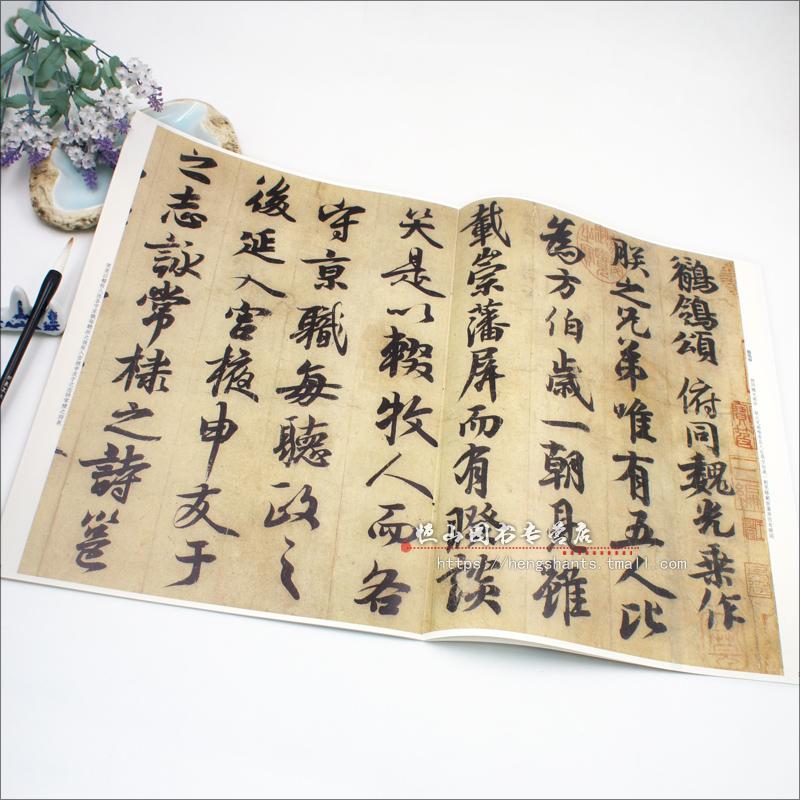 鶺鴒頌 俯同魏光乘作
朕之兄弟唯有五人比
為方伯歲一朝見雖
載崇藩屏而有睽談
笑是以輟牧人而各
守京職每聽政之
後延入宮掖申友于
之志詠常棣之詩邕
恒山图书专营店
https://hengshants.tmall.com